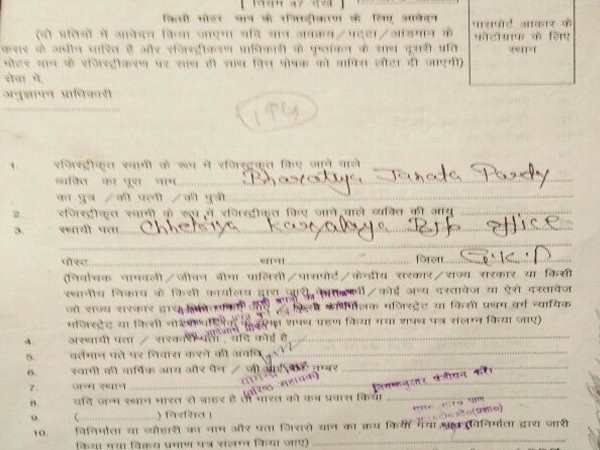 [ नियम 47 देखें ]
किसी मोटर यान के रजिस्ट्रीकरण के लिए आवेदन
(दो प्रतियों में आवेदन किया जाएगा यदि यान अवक्रय/पट्टा/आडमान के
करार के अधीन धारित है और रजिस्ट्रीकरण प्राधिकारी के पृष्ठांकन के साथ दूसरी प्रति
मोटर यान के रजिस्ट्रीकरण पर साथ ही साथ वित्त पोषक को वापिस लौटा दी जाएगी)
पासपोर्ट आकार के
फोटोग्राफ के लिए
स्थान
सेवा में,
अनुज्ञापन प्राधिकारी
1. रजिस्ट्रीकृत स्वामी के रूप में रजिस्ट्रकृत किए जाने वाले
व्यक्ति का पूरा नाम Bharatiya Janata Party
का पुत्र /की पत्नी /की पुत्री
2. रजिस्ट्रीकृत स्वामी के रूप में रजिस्ट्रीकृत किए जाने वाले व्यक्ति की आयु
3. स्थायी पता Chhetriya Karyalaya BJP office
पोस्ट थाना जिला G.K.P
(निर्वाचक नामवली/जीवन बीमा पालिसी/पासपोर्ट/केन्द्रीय सरकार/राज्य सरकार या किसी
स्थानीय निकाय के किसी कार्यालय द्वारा जारी /कोई अन्य दस्तावेज या ऐसे दस्तावेज
जो राज्य सरकार द्वारा मजिस्ट्रेट या किसी प्रथम वर्ग न्यायिक
मजिस्ट्रेट या किसी शपथ ग्रहण किया गया शपथ पत्र संलग्न किया जाए)
4. अस्थायी पता / सरकारी पता, यदि कोई है
5. वर्तमान पते पर निवास करने की अवधि
6. स्वामी की वार्षिक आय और पैन / जी आई नम्बर
7. जन्म स्थान
8. यदि जन्म स्थान भारत से बाहर है तो भारत को कब प्रवास किया
9. ( ) निरसित।
10. विनिर्माता या व्योहारी का नाम और पता जिससे यान का क्रय किया गया था (विनिर्माता द्वारा जारी
किया गया विक्रय प्रमाण पत्र संलग्न किया जाए)